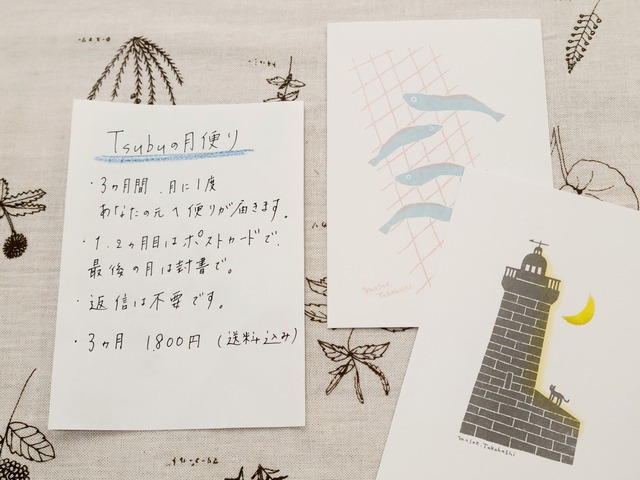 Tsubuの月便り
・3ヶ月間、月に1度
あなたの元へ便りが届きます。
・1、2ヶ月目はポストカードで、
最後の月は封書で。
・返信は不要です。
・3ヶ月 1,800円 (送料込み)
Takahashi